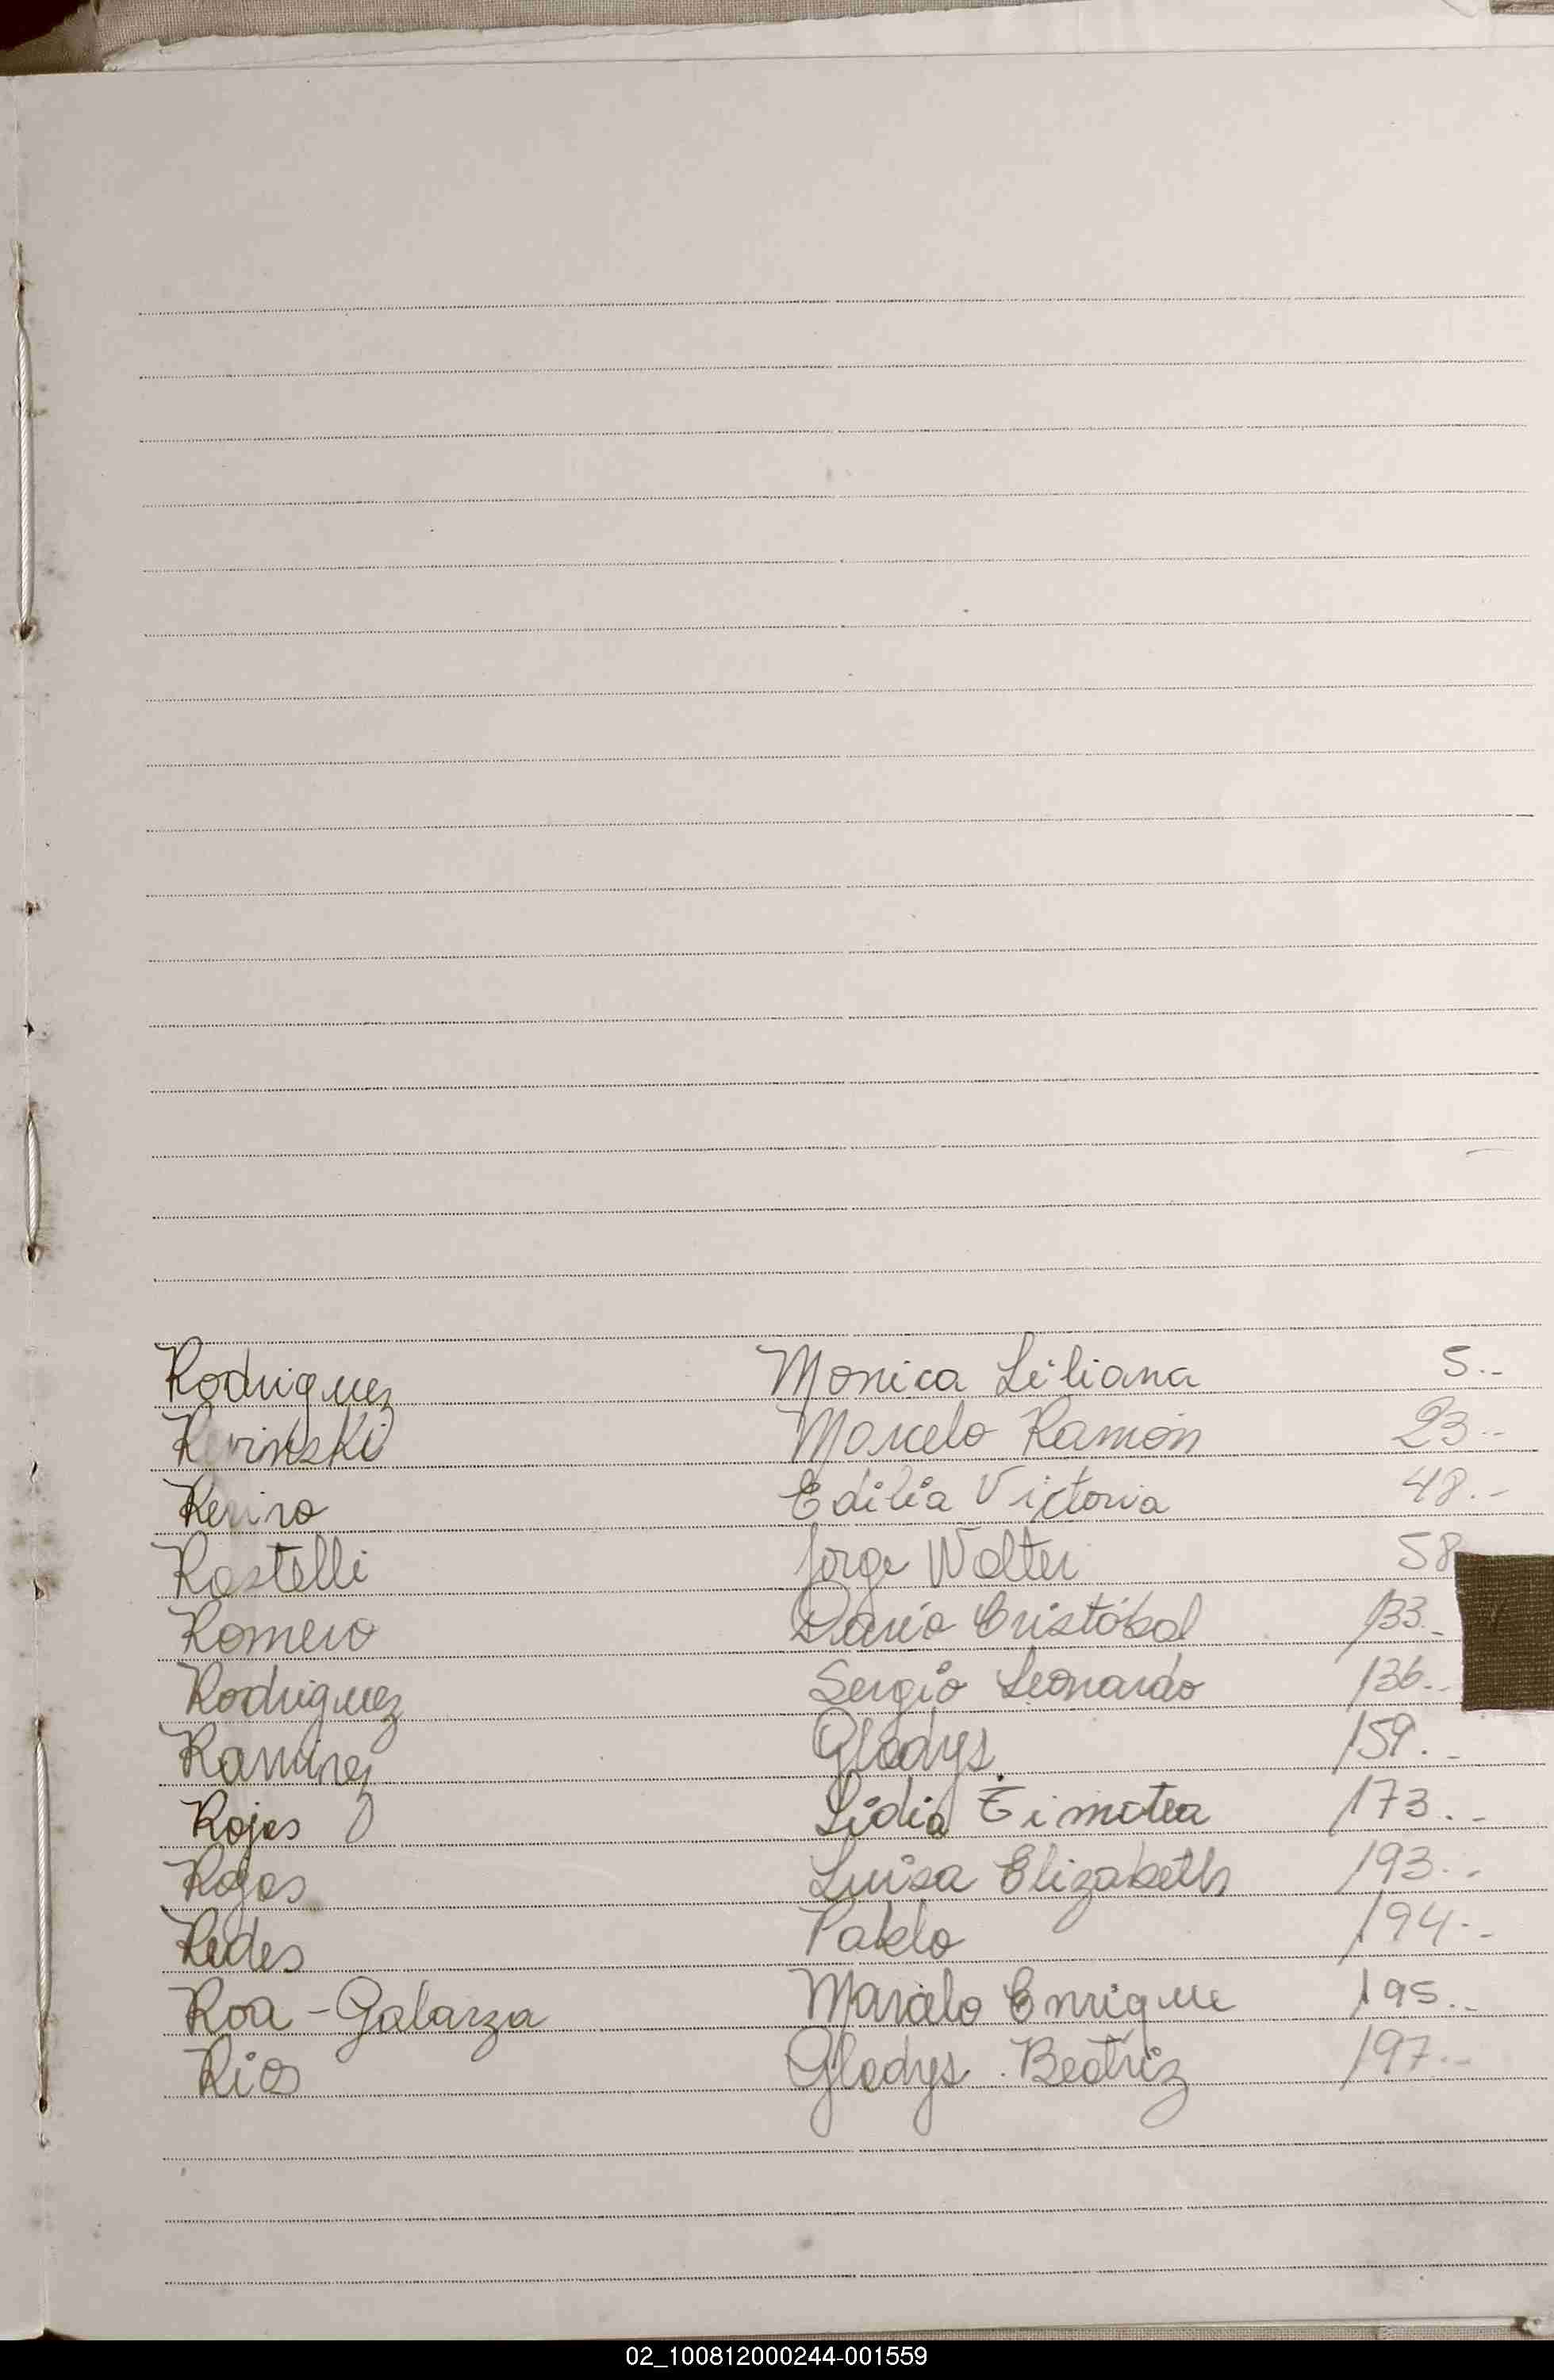 Rodriguez Monica Liliana 5.-
Marcelo Ramón 23.-
Edilia Victoria 48.-
Rostelli Jorge Walter 58
Romero Dario Cristóbal 133.-
Rodriguez Sergio Leonardo 136.-
Ramirez Gladys 159.-
Rojas Lidia Timotea 173.-
Rojas Luisa Elizabeth 193.-
Redes Pablo 194.-
Roa - Galarza Marcelo Enrique 195.-
Rios Gladys Beatriz 197.-
02_100812000244-001559